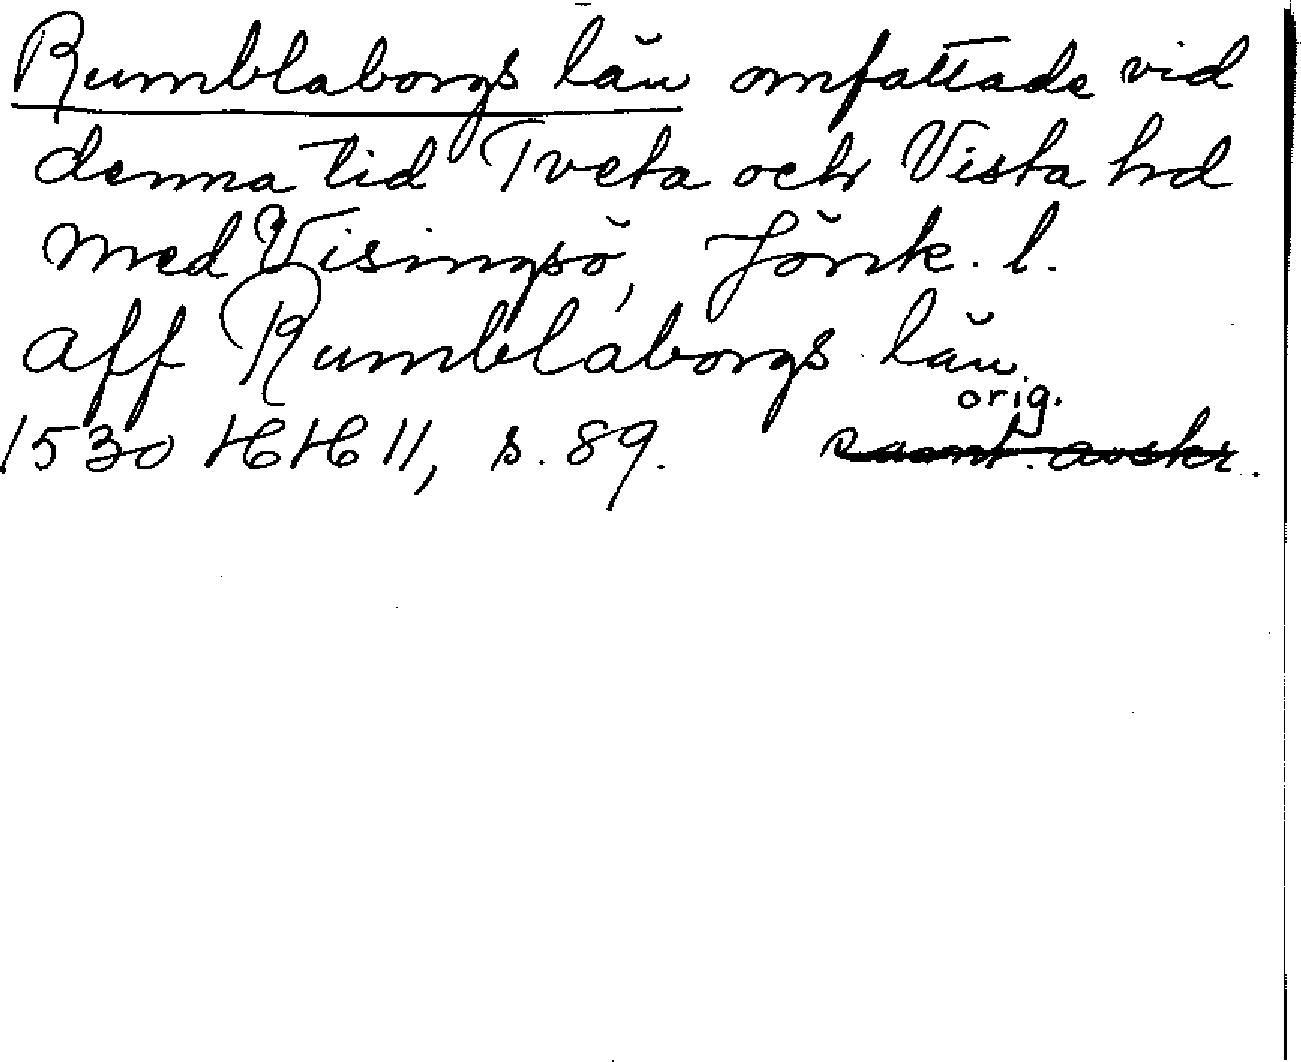 Rumblaborgs län omfattade vid
denna tid Tveta och Vista hd
med Visingsö, Jönk. l.
aff Rumblaborgs län
orig.
1530 HH 11, s. 89. samt. avskr.